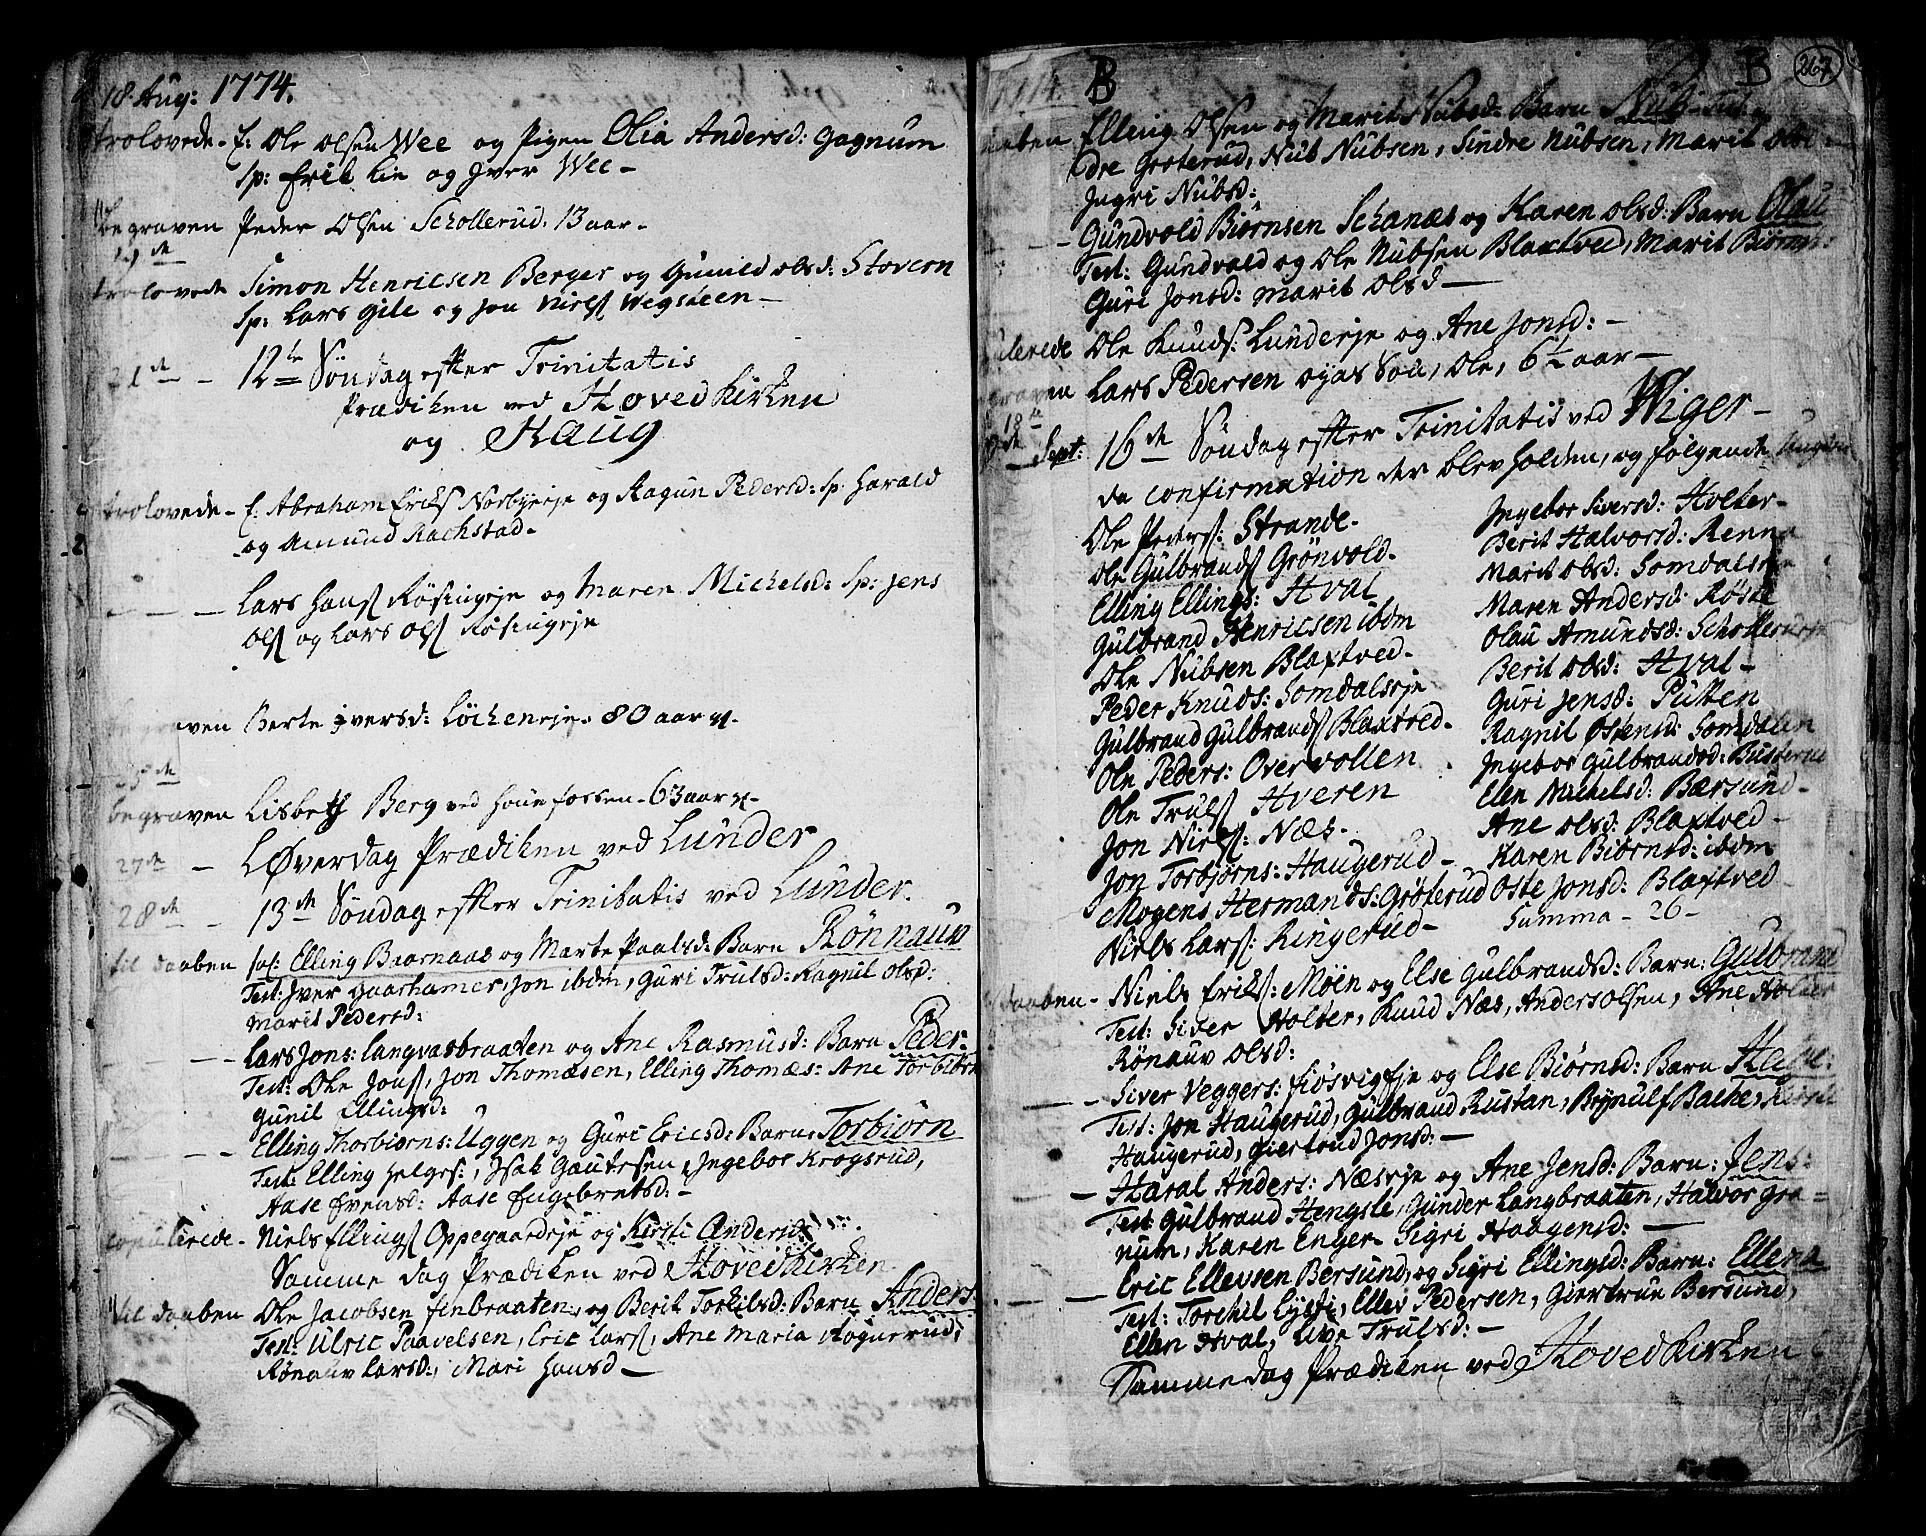 18 Aug: 1774.
trolovede - E: Ole Olsen Wee og Pigen Olia Andersd: Gagnum
Sp: Erik Lie og Jver Wee -
Begraven Peder Olsen Schollerud. 13 aar -
19de
trolovede Simon Henricsen Berger og Gunild Olsd: Stovern
Sp: Lars Gile og Jon Niels Wegsteen -
21de - 12te Søndag efter Trinitatis
Prædiken ved HovedKirken
og Haug
trolovede - E. Abraham Eriks Norbyeje og Ragun Pedersd: Sp: Harald
og Amund Rachstad -
- - - Lars Hans Røsingeje og Maren Michelsd: Sp: Jens
Ols og Lars Ols Røsingeje
begraven Berte Jversd: Løcheneje. 80 aar
25de
begraven Lisbeth Berg ved Hønefossen - 63 aar
27de - Løverdag Prædiken ved Lunder
28de - 13de Søndag efter Trinitatis ved Lunder.
til daaben Elling Biørnaas og Marte Paalsd: Barn Rønnauw
Test: Jver Gaarhamer, Jon ibdm, Guri Trulsd: Ragnil Olsd:
Marit Pedersd:
- - Lars Jons: Langvasbraaten og Ane Rasmusd: Barn Peder.
Test: Ole Jons, Jon Thomæsen, Elling Thomæs: Ane
Gunil Ellingsd:
- - - Elling Thorbiørns: Uggen og Guri Ericsd: Barn: Torbiørn
Test: Elling Helges:, Jsak Gautesen, Jngebor Krogsrud,
Aase Evensd: Aase Engebretsd: -
copulerede - Niels Ellings Oppegaardeje og Kirsti Andersd:
Samme dag Prædiken ved HovedKirken
til daaben Ole Jacobsen Finbraaten, og Berit Torkilsd: Barn Anders
Test: Ulric Paavelsen, Eric Lars, Ane Maria Hognerud,
Rønauv Larsd:, Mari Hansd -
1774. B B 267
daaben Elling Olsen og Marit Nubsd: Barn Nub - Test:
Groterud, Nub Nubsen, Sindre Nubsen, Marit Ols
Jngri Nubsd:
- - Gundvold Biørnsen Schanæs og Karen Olsd: Barn Olau
Test: Gundvald og Ole Nubsen Blaxtved, Marit
Guri Jonsd: Marit Olsd -
Ole Knuds: Lunderje og Ane Jonsd: -
Lars Pedersen Søn, Ole, 6 1/2 aar -
18de
Sept: 16de Søndag efter Trinitatis ved Wiger -
da confirmation der blev holden, og følgende
Ole Peders: Strande.
Ole Gulbrands Grønvold.
Elling Ellings: Hval
Gulbrand Henricsen ibdm
Ole Nubsen Blaxtved.
Peder Knuds: Somdalseje
Gulbrand Gulbrands Blaxtved.
Ole Peders: Overvollen
Ole Truls Hveren
Jon Niels: Næs.
Jon Torbjørns: Haugerud -
Mogens Hermands: Grøterud
Niels Lars: Ringerud -
Jngebor Siversd: Holter -
Berit Halvorsd: Renna
Marit Olsd: Somdalseje
Maren Andersd: Røste
Olau Amundsd: Schollerud
Berit Olsd: Hval -
Guri Jensd: Putten
Ragnil Østensd: Somdalen
Jngebor Gulbrandsd: Busterud
Elen Michelsd: Bærsund -
Ane Olsd: Blaxtved -
Karen Biørnsd: ibdm
Oste Jonsd: Blaxtved
Summa - 26 -
daaben - Niels Eriks: Moen og Else Gulbrandsd: Barn: Gulbrand
Test: Siver Holter, Knud Næs, Anders Olsen, Ane Holter
Rønauv Olsd:
- - Siver Veggers: Fiøsvigeje og Else Biørnsd: Barn Helge.
Test: Jon Haugerud, Gulbrand Rustan, Brynulf Bache, Kirsti
Haugerud, Giertrud Jonsd: -
- Haral Anders: Næseje og Ane Jensd: Barn: Jens:
Test Gulbrand Hengsle, Gunder Langbraaten, Halvor Gra=
num, Karen Enger. Sigri Haagensd: -
- - Eric Ellevsen Bersund, og Sigri Ellingsd: Barn: Ellena
Test: Torchil Lysti, Ellev Pedersen, Giertrue Bersund,
Ellen Hval, Live Trulsd: -
Samme dag Prædiken ved HovedKirken